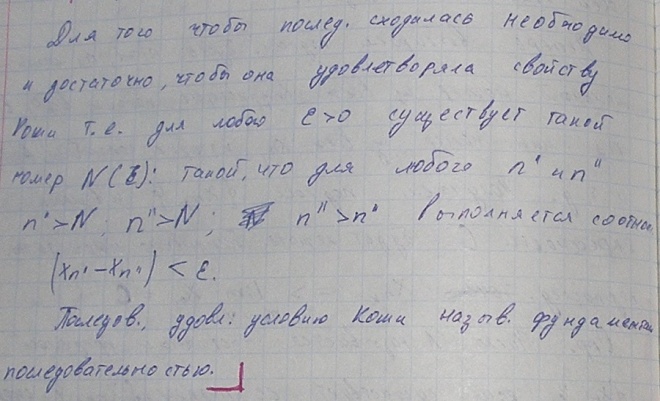 Для того чтобы послед. сходилась необходимо
и достаточно, чтобы она удовлетворяла свойству
Коши т.е. для любого ε>0 существует такой
номер N(ε): такой, что для любого n' и n"
n'>N; n">N; n">n' выполняется соотн.
(xn' - xn") < ε.
Последов., удовл. условию Коши назыв. фундаментал
последовательностью.